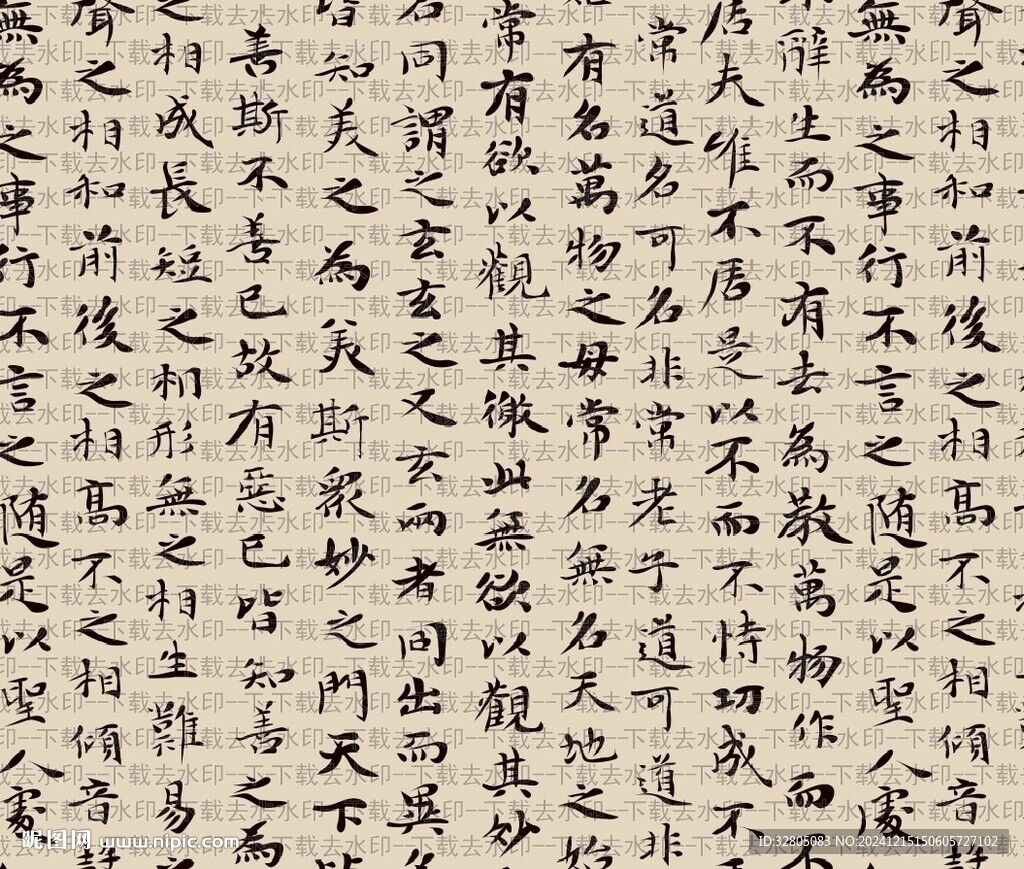 聲之相和前後之相髙不之相傾音
無為之事行不言之随是以聖人處
辭生而不有去為教萬物作而不
居夫唯不居是以不而不恃功成不
常道名可名非常老子道可道非
有名萬物之母常名無名天地之始
常有欲以觀其徼此無欲以觀其妙
名同謂之玄玄之又玄兩者同出而異名
皆知美之為美斯眾妙之門天下皆
善斯不善已故有惡已皆知善之為
之相成長短之相形無之相生難易之
聲之相和前後之相髙不之相傾音
無為之事行不言之随是以聖人處
昵图网 www.nipic.com
ID:32805083 NO:20241215150605727102